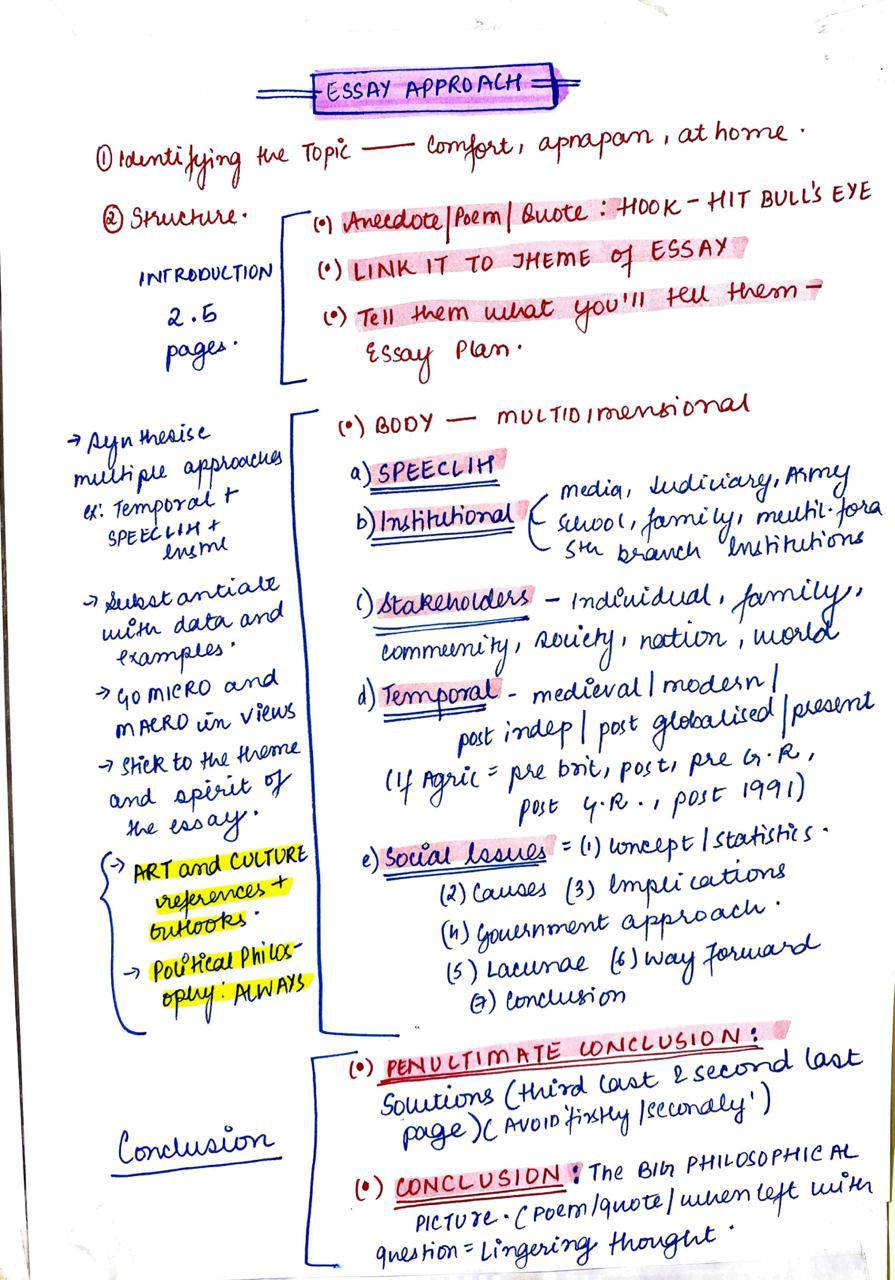 ESSAY APPROACH
① Identifying the Topic — comfort, apnapan, at home.
② Structure.
INTRODUCTION
2.5
pages.
(•) Anecdote/Poem/Quote : HOOK - HIT BULL'S EYE
(•) LINK IT TO THEME of ESSAY
(•) Tell them what you'll tell them -
Essay Plan.
→ Synthesise
multiple approaches
ex: Temporal +
SPEECLIH +
→ Substantiate
with data and
examples.
→ GO MICRO and
MACRO in VIEWS
→ Stick to the theme
and spirit of
the essay.
→ ART and CULTURE
references +
outlooks.
→ Political Philos-
ophy: ALWAYS
(•) BODY — MULTIDImensional
a) SPEECLIH
b) Institutional
media, Judiciary, Army
school, family, multil. fora
5th branch Institutions
c) Stakeholders - Individual, family,
community, society, nation, world
d) Temporal - medieval/modern/
post indep/post globalised/present
(If Agric = pre brit, post, pre G.R,
post G.R., post 1991)
e) Social Issues = (1) Concept/Statistics.
(2) Causes (3) Implications
(4) Government approach.
(5) Lacunae (6) Way Forward
(7) Conclusion
Conclusion
(•) PENULTIMATE CONCLUSION:
Solutions (third last & second last
page) (AVOID 'firstly/secondly')
(•) CONCLUSION: The BIG PHILOSOPHICAL
PICTURE. (Poem/quote/when left with
question = Lingering thought.